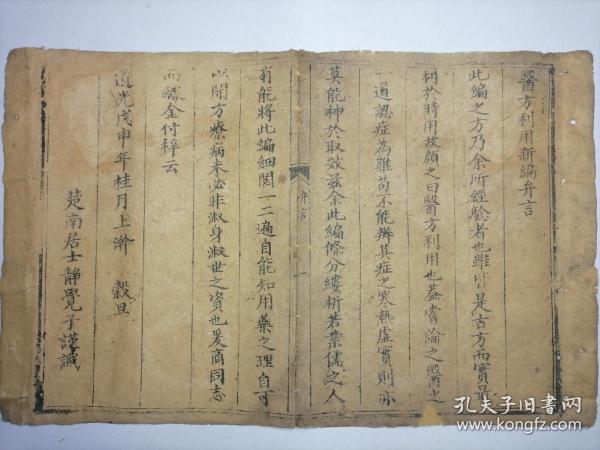 醫方利用新編弁言
此編之方乃余所經驗者也雖皆是古方而實最
利於時用故顏之曰醫方利用也蓋嘗論之醫之
一道認症為難苟不能辨其症之寒熱虛實則亦
莫能神於取效茲余此編條分縷析若業儒之人
弁言
一
苟能將此編細閱一二遍自能知用藥之理自可
以開方療病未必非淑身淑世之資也爰商同志
而醵金付梓云
道光戊申年桂月上澣 穀旦
楚南居士靜覺子謹識
孔夫子旧书网
www.kongfz.com